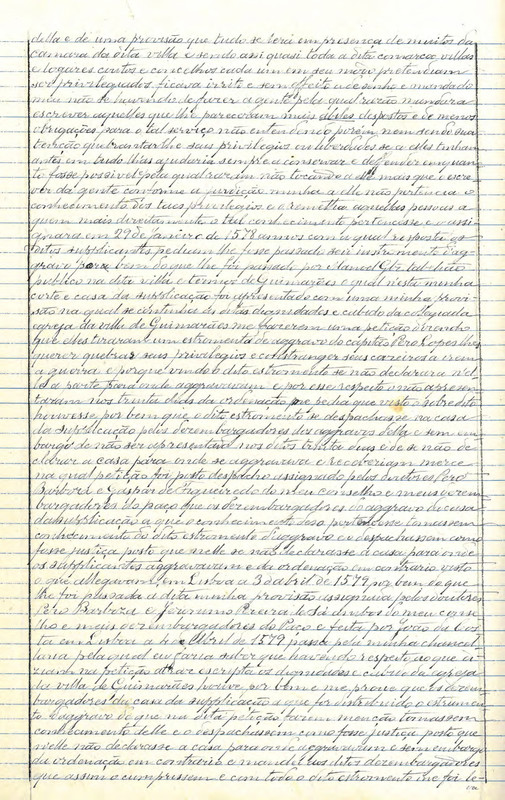 della e de uma provisão que tudo se verá em presença de muitos da
camara da dita villa e sendo assi quasi toda a dita comarca, villas
e logares coutos e concelhos cada um em seu modo pretendiam
ser privilegiados, ficava irrito e sem effeito o dezenho e mandado
meu não se havendo de fazer a gente pela qual razão mandara
escrever aquelles que lhe pareceram mais destes despostos e de menos
obrigações para o tal serviço não entendendo porém nem sendo sua
tenção quebrantar lhe seus privilegios ou liberdades se a elles tinham
antes em tudo lhas ajudaria sempre a conservar e defender em quan-
to fosse possivel pela qual razam não tocando a elle mais que escre-
ver da gente conforme a jurdição minha a elle não pertencia o
conhecimento dos taes privilegios e o remettia aquellas pessoas a
quem mais direitamente o tal conhecimento pertencesse e o assi-
gnara em 29 de Janeiro de 1578 annos com a qual resposta os
ditos supplicantes pediram lhe fosse passado seu instrumento d'ag-
gravo por bem do que lhe foi passado por Manoel Glz tabalião
publico na dita villa e termo de Guimarães o qual nesta minha
corte e casa da supplicação foi apresentado com uma minha provi-
são na qual se continha os ditos dignidades e cabido da collegiada
egreja da villa de Guimarães me fazerem uma petição dizendo
que elles tiraram um estromento de aggravo do capitão Pero Lopes lhes
querer quebrar seus privilegios e constranger seus caseiros a irem
a guerra e porque vindo o dito estromento se não declarara nel-
le a parte para onde aggravavam e por esse respeito o não apresen-
taram nos trinta dias da ordenação me pedia que visto sobredito
houvesse por bem que o dito estromento se despachasse na casa
da supplicação pelos desembargadores dos aggravos della e sem em-
bargo de não ser apresentado nos ditos trinta dias e de se não de-
clarar a casa para onde se aggravava e receberiam merce
na qual petição foi posto despacho assignado pelos doutores Pero
Barboza e Gaspar de Figueiredo do meu conselho e meus desem-
bargadores do paço que os desembargadores do aggravo da casa
da supplicação a que o conhecimento deso pertencesse tomassem
conhecimento do dito estromento d'aggravo e o despachassem como
fosse justiça posto que nelle se não declarasse a casa para onde
os supplicantes aggravavam e da ordenação em contrario visto
o que allegavam, em Lisboa a 3 d'abril de 1579, por bem do que
lhe foi passada a dita minha provisão assignada pelos doutores
Pero Barboza e Jeronimo Pereira de Sá ambos do meu conse-
lho e meus desembargadores do Paço e feita por João da Cos-
ta em Lisboa a 4 de Abril de 1579 e passe pela minha chancel-
laria pela qual eu fazia saber que havendo respeito ao que di-
ziam na petição atraz escripta os dignidades e cabido da egreja
da villa de Guimarães houve por bem e me praz que os desem-
bargadores da casa da supplicação a que foi distribuido o estromen-
to d'aggravo de que na dita petição fazem menção tomassem
conhecimento delle e o despachassem como fosse justiça posto que
nelle não declarasse a casa para onde aggravavam e sem embargo
da ordenação em contrario e mandei aos ditos desembargadores
que assim o cumprissem e com todo o dito estromento me foi le-